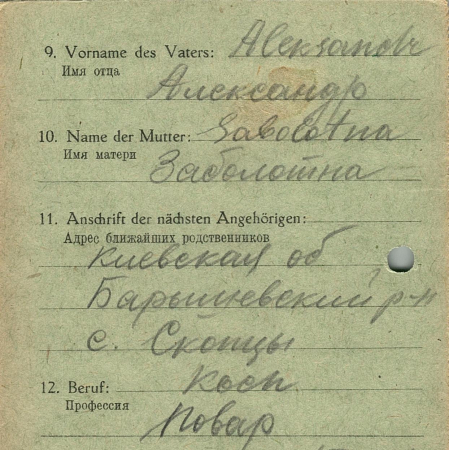 9. Vorname des Vaters: Aleksandr
Имя отца
Александр
10. Name der Mutter: Sabolotna
Имя матери
Заболотна
11. Anschrift der nächsten Angehörigen:
Адрес ближайших родственников
Киевская об
Барышевский р-н
с. Скопцы
12. Beruf: Koch
Профессия
Повар